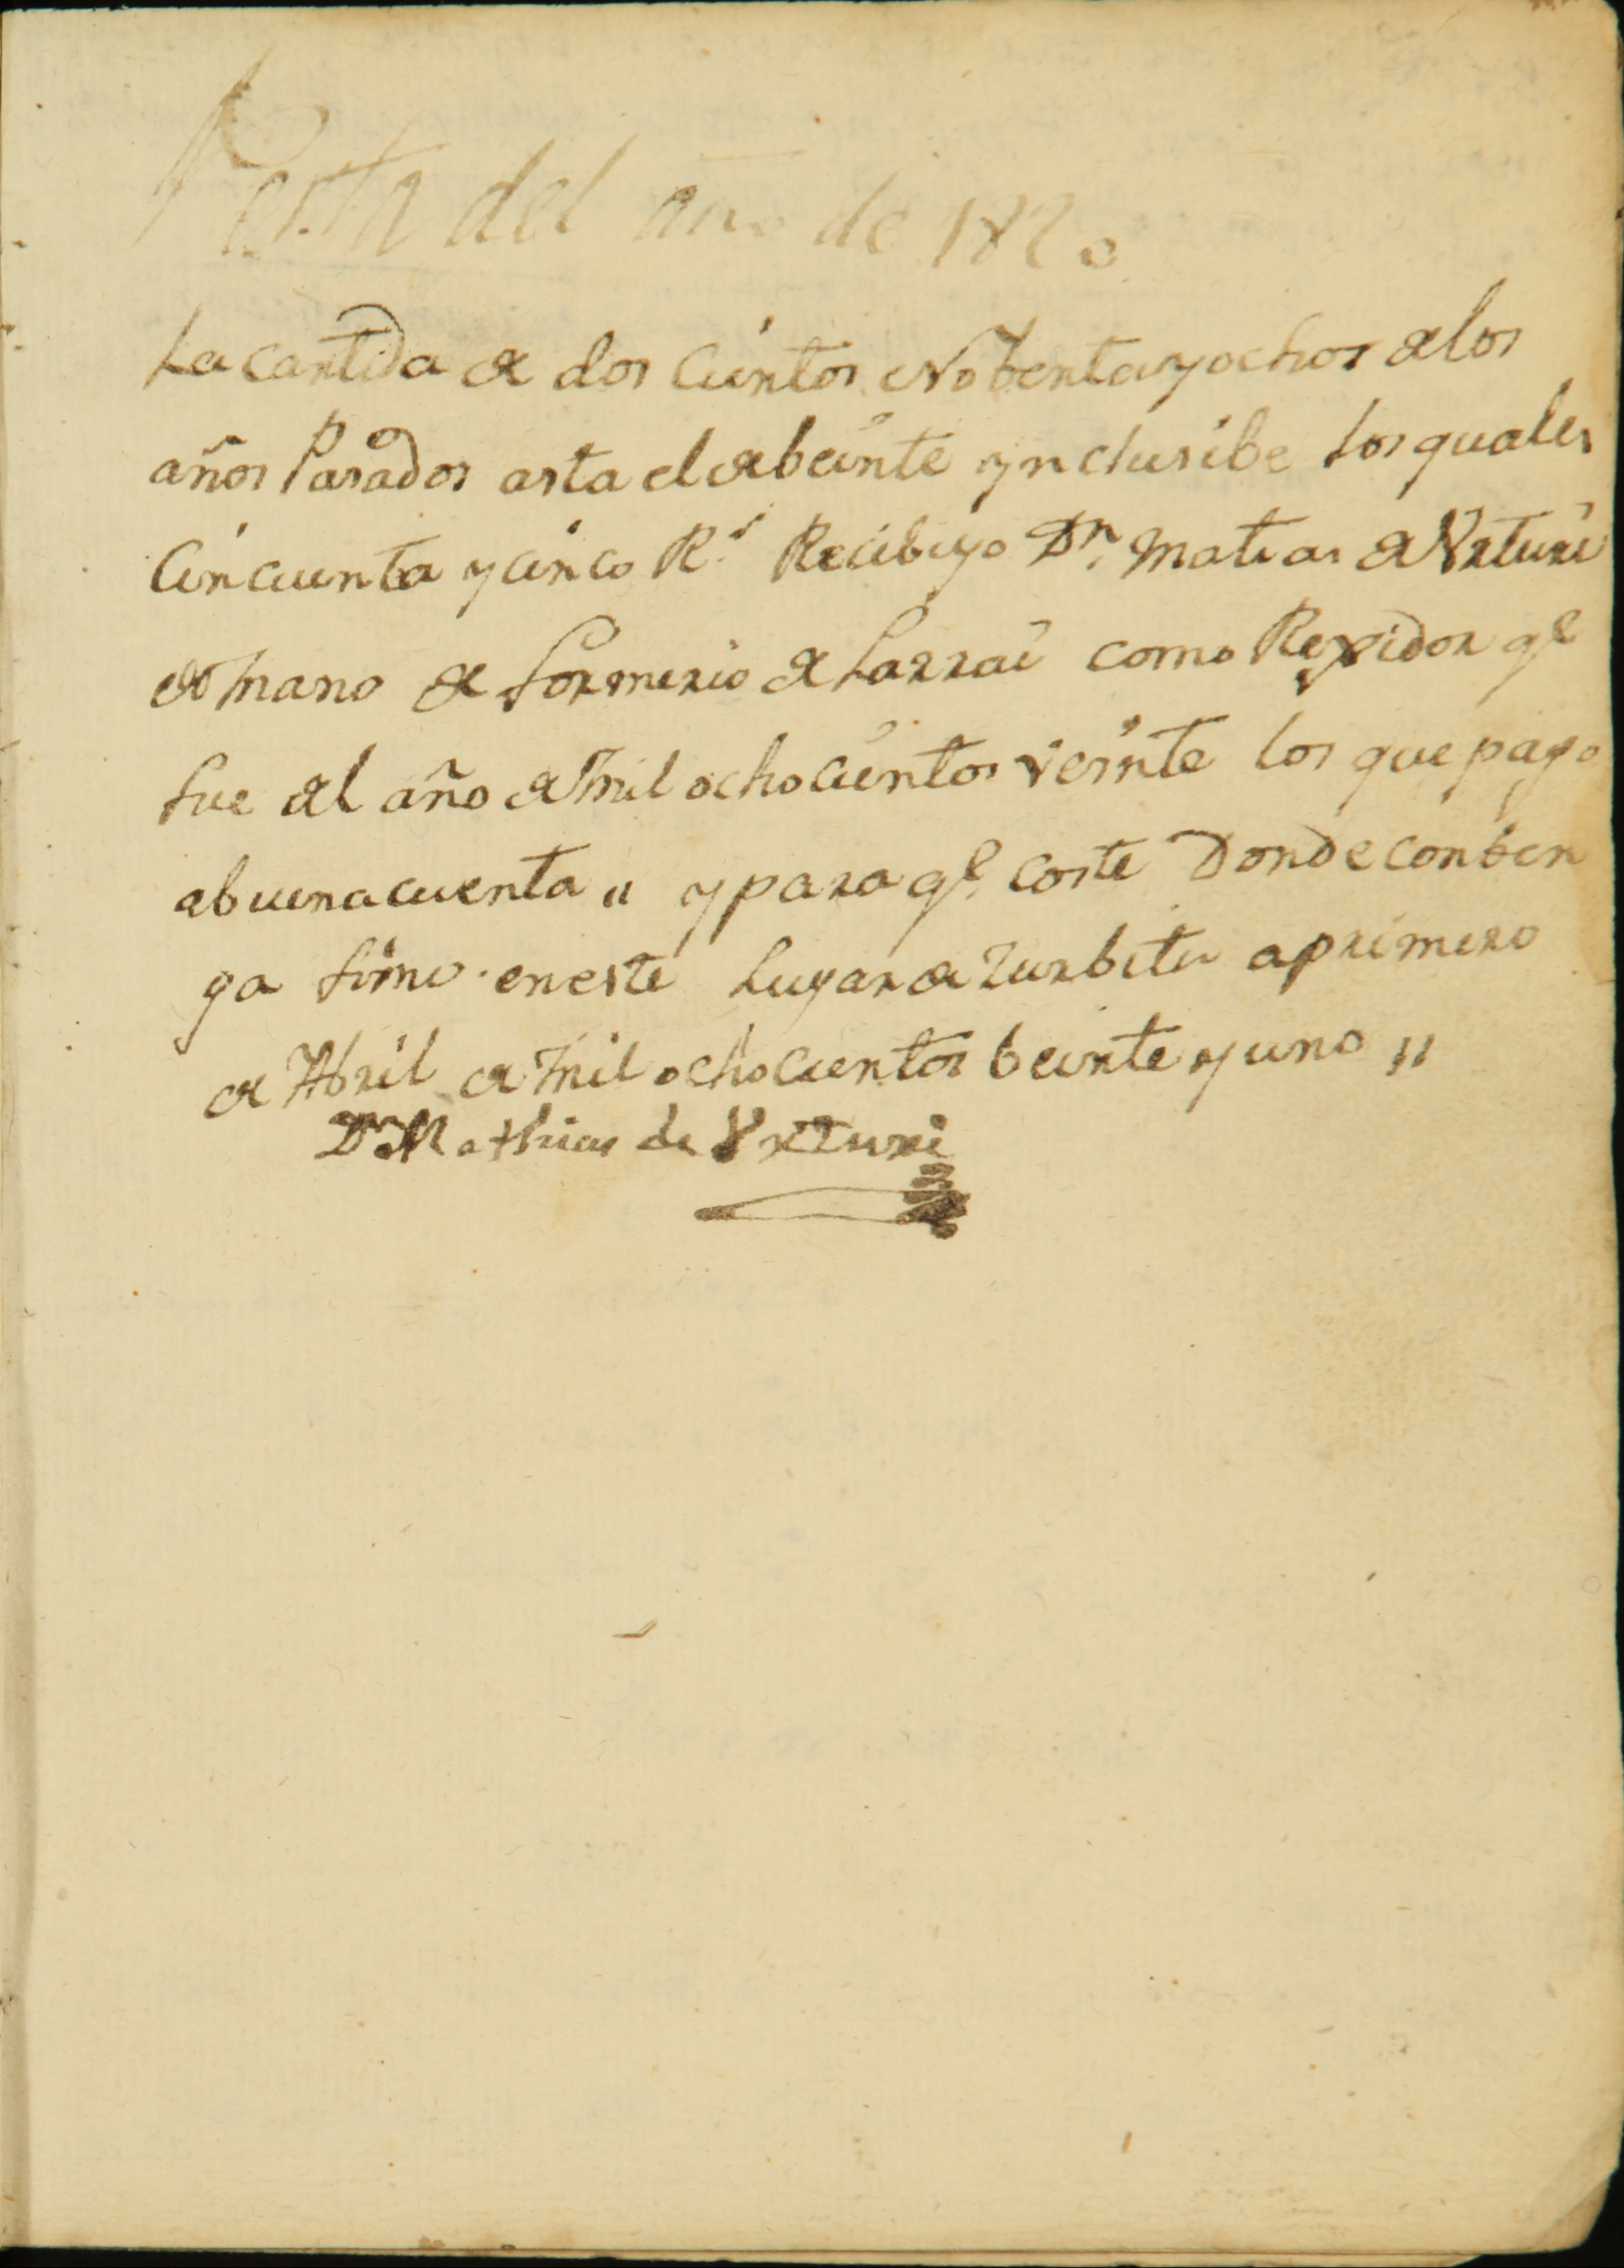 Resta del año de 1820
La cantida de dos cientos Nobenta y ochos de los
años Pasados asta el de beinte ynclusibe los quales
Cincuenta y cinco R.s Recibiyo Dn. Matias de Vrturi
de mano de formerio de Larrai como Rexidor qe
fue del año de mil ocho cientos veinte los que pago
a buena cuenta " y para qe. coste Donde conben
ga firmo en este Lugar de Zurbitu a primero
de Abril de mil ocho cientos beinte y uno "
Dn Mathias de Vrturi